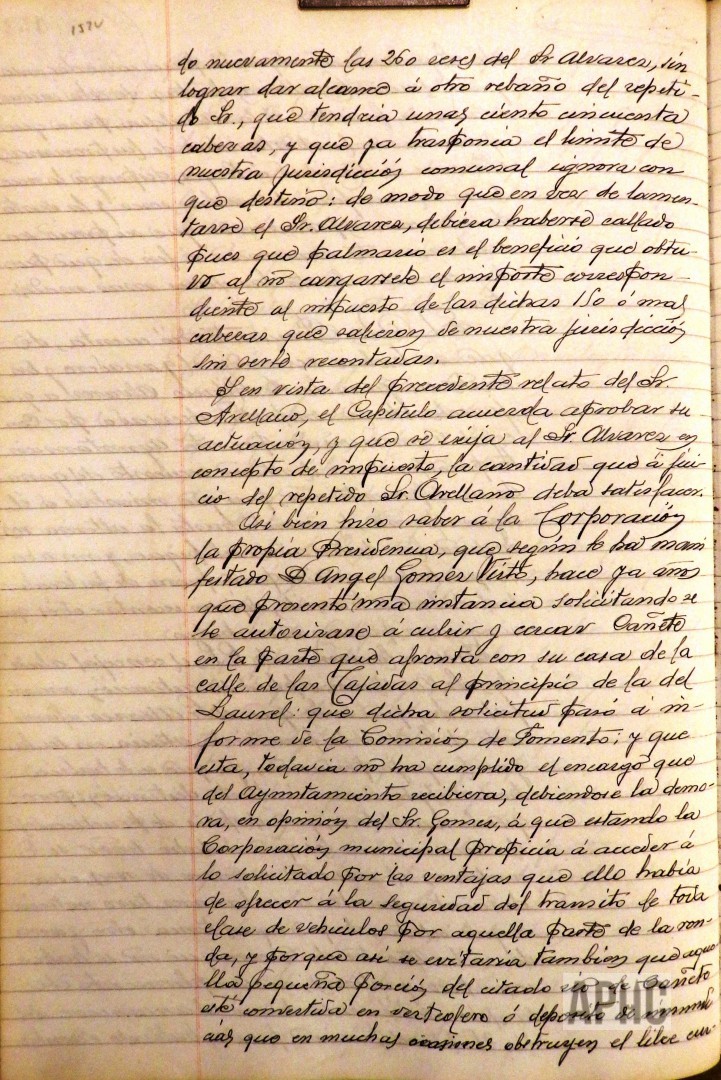 157v
do nuevamente las 260 reses del Sr Alvarez, sin
lograr dar alcance á otro rebaño del repeti-
do Sr., que tendria unas ciento cincuenta
cabezas, y que ya trasponia el limite de
nuestra jurisdicción comunal ignora con
que destino: de modo que en vez de lamen-
tarse el Sr. Alvarez, debiera haberse callado
pues que palmario es el beneficio que obtu-
vo al no cargarsele el importe correspon
diente al impuesto de las dichas 150 ó mas
cabezas que salieron de nuestra jurisdicción
sin serle recontadas.
Y en vista del precedente relato del Sr.
Arellano, el Capitulo acuerda aprobar su
actuación, y que se exija al Sr. Alvarez en
concepto de impuesto, la cantidad que á jui
cio del repetido Sr. Arellano deba satisfacer.
Asi bien hizo saber á la Corporación
la propia Presidencia, que según le ha mani
festado D Angel Gomez Visto, hace ya años
que presentó una instancia solicitando se
le autorizase á cubrir y cercar Cañete
en la parte que afronta con su casa de la
calle de las Tajadas al principio de la del
Laurel: que dicha solicitud pasó á in-
forme de la Comisión de Fomento; y que
esta, todavia no ha cumplido el encargo que
del Ayuntamiento recibiera, debiendose la demo-
ra, en opinión del Sr. Gomez, á que estando la
Corporación municipal propicia á acceder á
lo solicitado por las ventajas que ello había
de ofrecer á la seguridad del transito de toda
clase de vehiculos por aquella parte de la ron-
da, y porque asi se evitaria tambien que aque
lla pequeña porción del citado rio de Cañete
esté convertida en vertedero ó deposito de inmundi
cias que en muchas ocasiones obstruyen el libre cur-
APHC